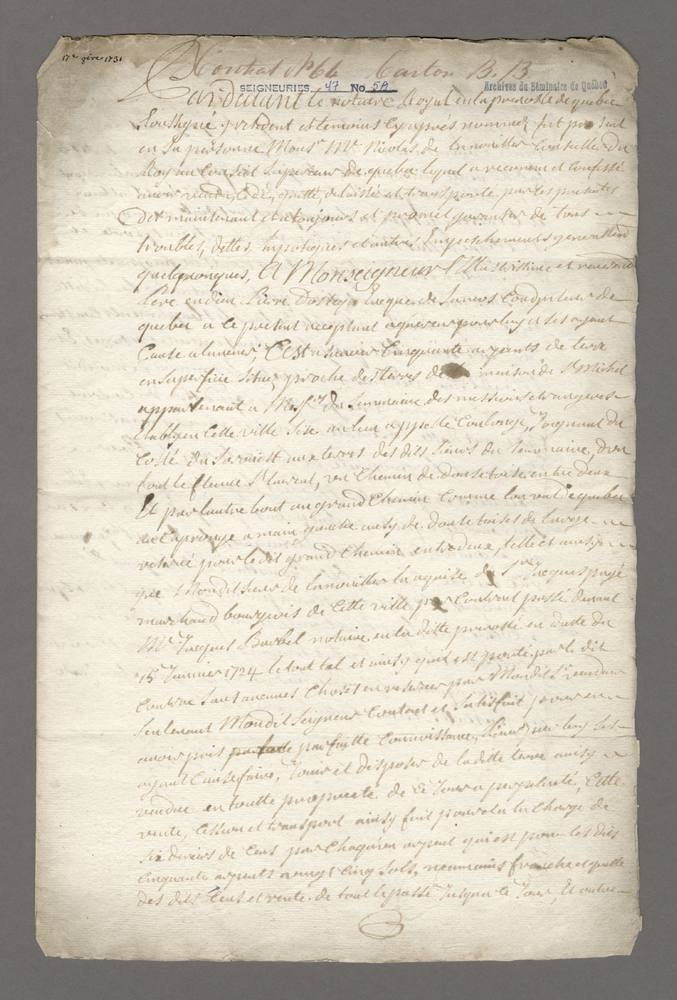 17e 9bre 1731
Contrat No 64 Carton B. B
SEIGNEURIES. 47 No 5A Archives du Séminaire de Québec
Pardevant le notaire Royal en la prevosté de quebec
Soussigné resident et temoins cy après nommez, fut present
en sa personne Monsr Me Nicolas de Lanouiller Conseiller du
Roy au Conseil Superieur de quebec lequel a reconnu et confessé
avoir vendu, cedé, quitté, delaissé et transporté par les presentes
des maintenant et a toujours et promet garantir de tous
troubles, dettes, hypoteques et autres Empeschements generallement
quelquonques, A Monseigneur L'Illustrissime et reverend
Pere en dieu Pierre
quebec a ce present acceptant acquereur pour luy et ses ayant
Cause a l'avenir, C'est a scavoir Cinquante arpents de terre
en Superficie Situez proche des terres de la maison de St Michel
appartenant a Mesrs du Seminaire des missions etrangeres
Etably en cette ville Size au lieu appellé Coulonge, Joignant du
Costé du Sorouest aux terres des dits Sieurs du Seminaire, d'un
bout le fleuve St Laurent, un Chemin de douse toise entre deux
Et par l'autre bout au grand Chemin Comme l'on va de quebec
au Cap rouge a main gauche aussy de douse toises de large
reservé pour le dit grand Chemin entre deux, telle et ainsy
que Mondit Sieur de Lanouiller l'a aquise du Sr Jacques pagé
marchand bourgeois de Cette ville par Contrat passé devant
Me Jacques Barbel notaire en la ditte prevosté en datte du
15e Janvier 1724 le tout tel et ainsy quil est porté par le dit
Contrat Sans aucunes Choses en reserver par Mondit Sr vendeur
Seulement Mondit Seigneur Contant et Satisfait pour en
avoir pris parfaitte Connoissance, luy ses
ayant Cause faire, Jouir et disposer de la ditte terre ainsy
vendue en toutte proprieté de Ce Jour a perpetuité, Cette
vente, Cession et transport ainsy fait pour et a la Charge de
Six deniers de Cens par Chaque arpent qui est pour les dits
Cinquante arpents a vingt Cinq Sols, neanmoins franche et quitte
des dits Cens et rente de tout le passé Jusqu'a Ce Jour, Et outre